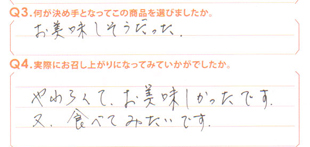 Q3.何が決め手となってこの商品を選びましたか。
お美味しそうだった.
Q4.実際にお召し上がりになってみていかがでしたか。
やわらくて、お美味しかったです.
又、食べてみたいです.